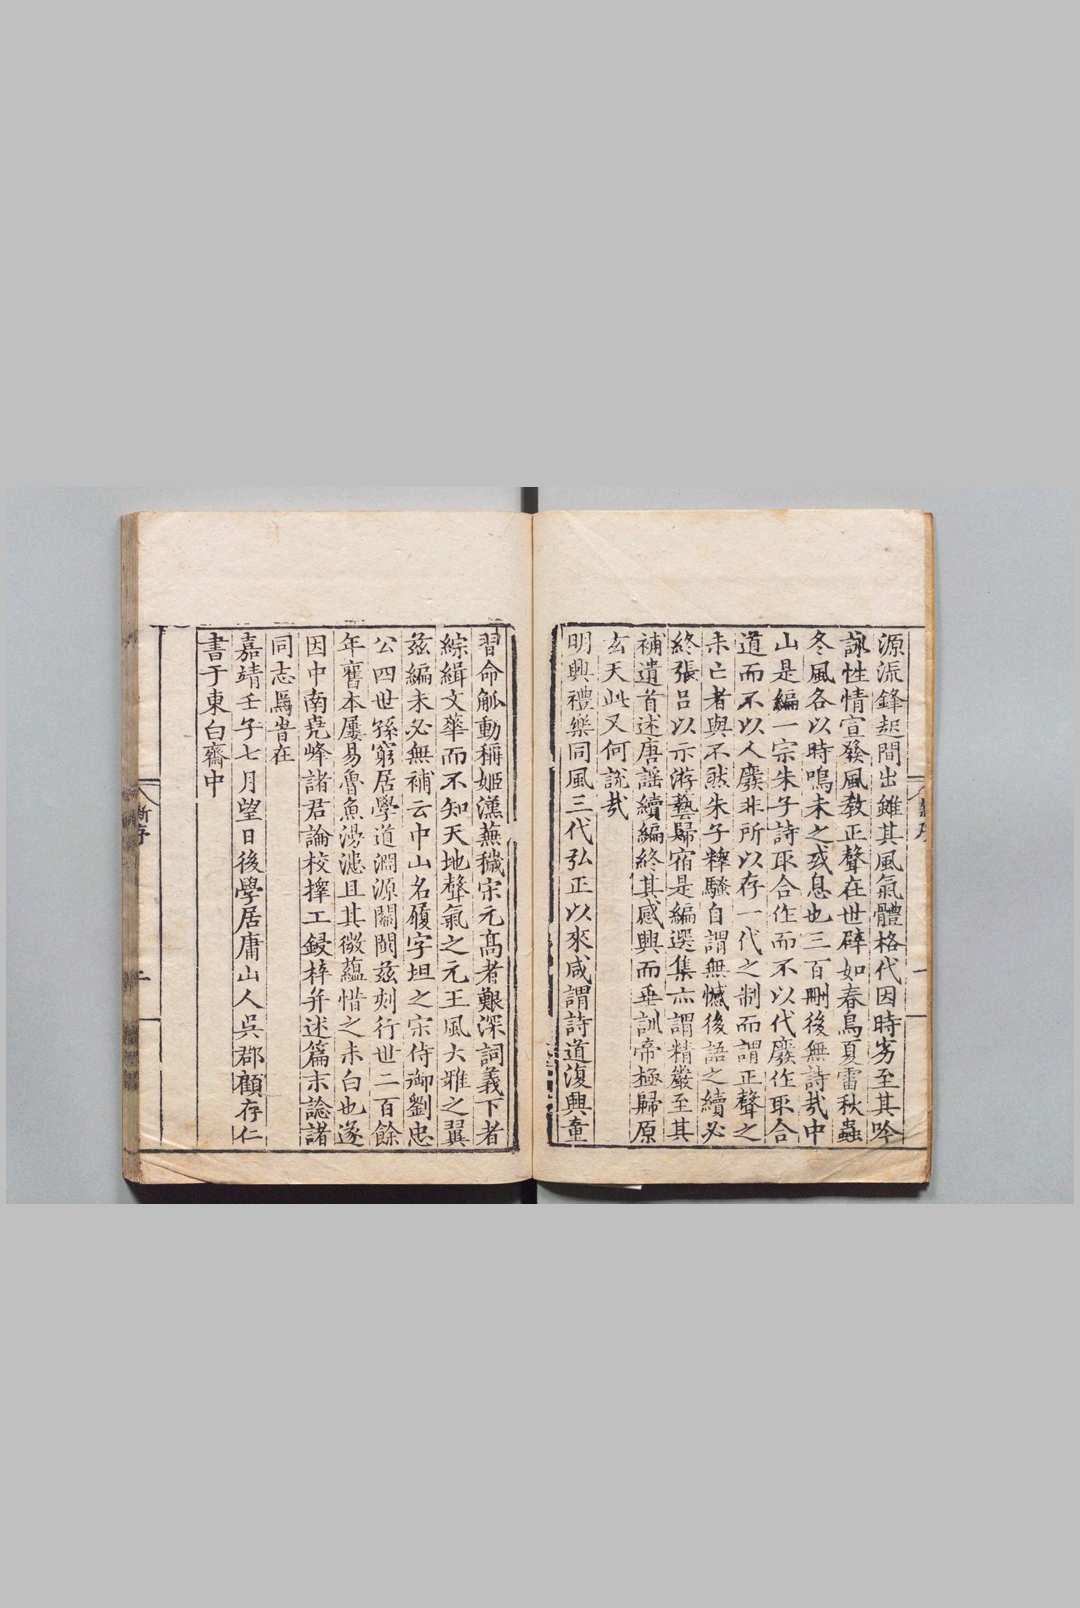 源流鋒起間出雖其風氣體格代因時劣至其吟
詠性情宣發風敎正聲在世辟如春鳥夏雷秋蟲
冬風各以時鳴未之或息也三百刪後無詩㢤中
山是編一宗朱子詩取合作而不以代廢作取合
道而不以人廢非所以存一代之制而謂正聲之
未亡者與不然朱子稡騷自謂無憾後語之續必
終張呂以示游藝歸宿是編選集亦謂精嚴至其
補遺首述唐謡續編終其感興而垂訓帝極歸原
玄天此又何說㢤
明興禮樂同風三代弘正以來咸謂詩道復興童
習命觚動稱姬漢蕪穢宋元高者艱深詞義下者
綜緝文華而不知天地聲氣之元王風大雅之翼
茲編未必無補云中山名履字坦之宋侍御劉忠
公四世孫窮居學道淵源關閩茲刻行世二百餘
年舊本屢易魯魚涉濾且其微蘊惜之未白也遂
因中南堯峰諸君論校擇工鋟梓幷述篇末諗諸
同志焉旹在
嘉靖壬子七月望日後學居庸山人吳郡顧存仁
書于東白齋中
新序
二